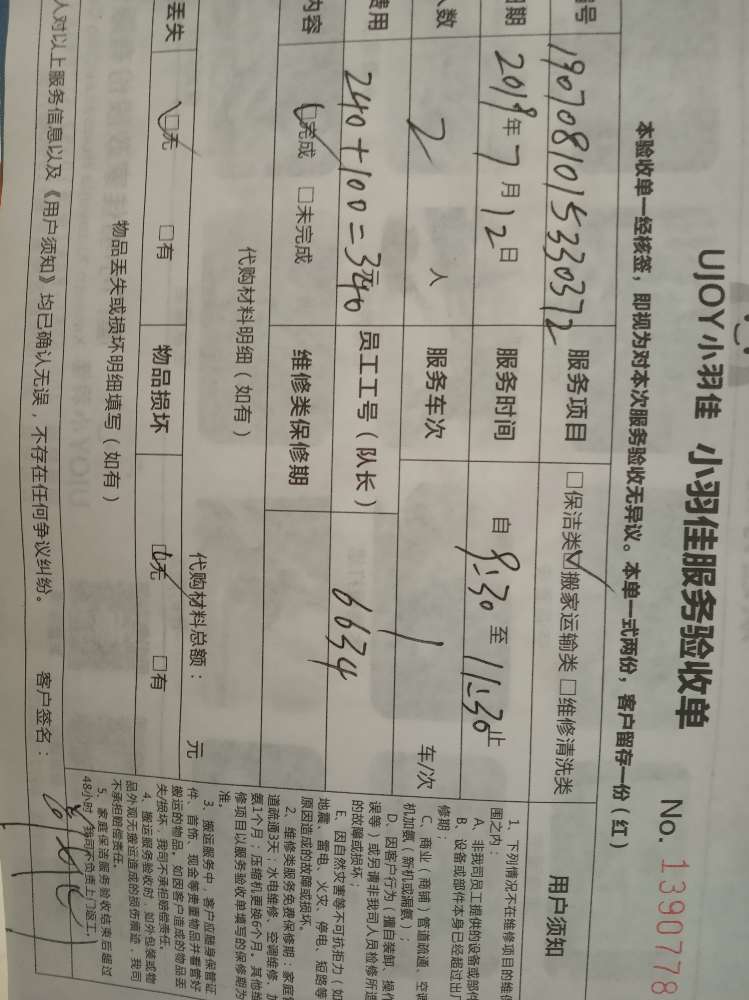 UJOY小羽佳 小羽佳服务验收单
No. 1390778
本验收单一经核签，即视为对本次服务验收无异议。本单一式两份，客户留存一份（红）
号 190708101533037２ 服务项目 □保洁类 ☑搬家运输类 □维修清洗类
期 2019年7月12日 服务时间 自 9:30 至 11:30 止
人数 2 人 服务车次 1 车/次
费用 240+100=340 员工工号（队长） 6634
内容 ☑完成 □未完成 维修类保修期
代购材料明细（如有） 代购材料总额： 元
丢失 ☑无 □有 物品损坏 ☑无 □有
物品丢失或损坏明细填写（如有）
人对以上服务信息以及《用户须知》均已确认无误，不存在任何争议纠纷。 客户签名：
用户须知
1、下列情况不在维修项目的维保
围之内：
A、非我司员工提供的设备或部件
B、设备或部件本身已经超过出厂
修期；
C、商业（商铺）管道疏通、空调
机加氨（新机或漏氨）；
D、因客户行为（擅自装卸、操作
误等）或另请非我司人员检修所造
的故障或损坏；
E、因自然灾害等不可抗拒力（如
地震、雷电、火灾、停电、短路等
原因造成的故障或损坏。
2、维修类服务免费保修期：家庭管
道疏通3天；水电维修、空调维修、加
氨1个月；压缩机更换6个月。其他维
修项目以服务验收单填写的保修期为
准。
3、搬运服务中，客户应随身保管证
件、首饰、现金等贵重物品并看管好
搬运的物品。如因客户造成的物品丢
失/损坏，我司不承担赔偿责任。
4、搬运服务验收时，如外包装或物
品外观无搬运造成的损伤痕迹，我司
不承担赔偿责任。
5、家庭保洁服务验收结束后超过
48小时，我司不负责上门返工。